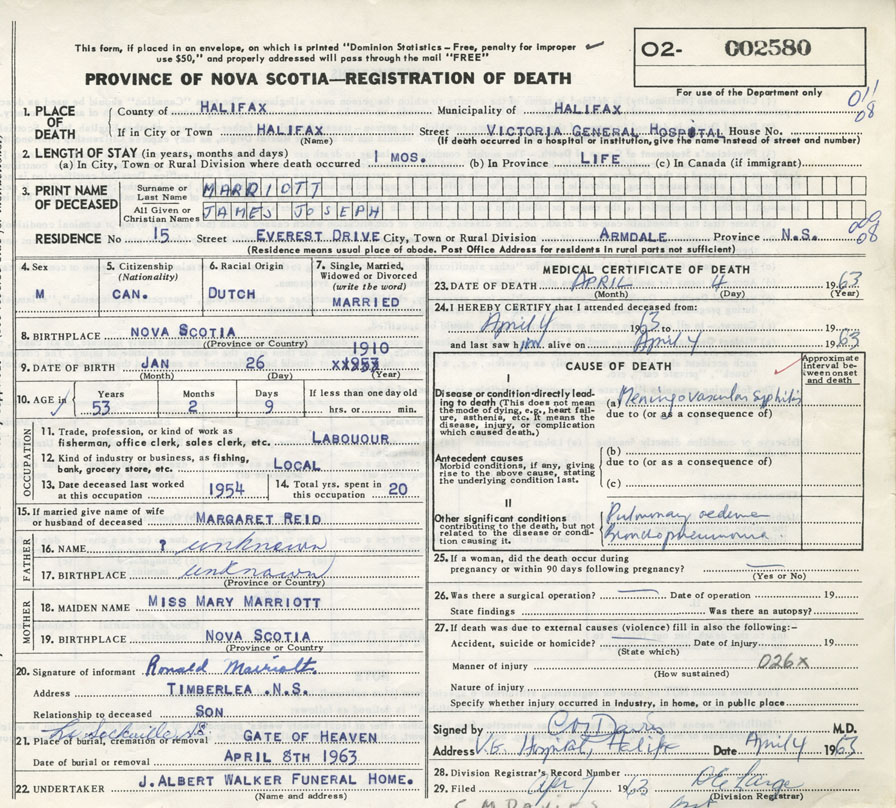 This form, if placed in an envelope, on which is printed "Dominion Statistics—Free, penalty for improper
use $50," and properly addressed will pass through the mail "FREE"
O2- C02580
PROVINCE OF NOVA SCOTIA—REGISTRATION OF DEATH
For use of the Department only
1. PLACE OF DEATH County of HALIFAX Municipality of HALIFAX 011
If in City or Town HALIFAX Street VICTORIA GENERAL HOSPITAL House No. 08
(Name) (If death occurred in a hospital or institution, give the name instead of street and number)
2. LENGTH OF STAY (in years, months and days)
(a) In City, Town or Rural Division where death occurred 1 MOS. (b) In Province LIFE (c) In Canada (if immigrant)
3. PRINT NAME OF DECEASED Surname or Last Name MARRIOTT
All Given or Christian Names JAMES JOSEPH
RESIDENCE No 15 Street EVEREST DRIVE City, Town or Rural Division ARMDALE Province N.S. 08
(Residence means usual place of abode. Post Office Address for residents in rural parts not sufficient)
4. Sex M
5. Citizenship (Nationality) CAN.
6. Racial Origin DUTCH
7. Single, Married, Widowed or Divorced (write the word) MARRIED
8. BIRTHPLACE NOVA SCOTIA
(Province or Country)
1910
9. DATE OF BIRTH JAN 26
(Month) (Day) (Year)
10. AGE in Years 53 Months 2 Days 9 If less than one day old hrs. or min.
OCCUPATION
11. Trade, profession, or kind of work as fisherman, office clerk, sales clerk, etc. LABOUOUR
12. Kind of industry or business, as fishing, bank, grocery store, etc. LOCAL
13. Date deceased last worked at this occupation 1954
14. Total yrs. spent in this occupation 20
15. If married give name of wife or husband of deceased MARGARET REID
FATHER
16. NAME ? unknown
17. BIRTHPLACE unknown
(Province or Country)
MOTHER
18. MAIDEN NAME MISS MARY MARRIOTT
19. BIRTHPLACE NOVA SCOTIA
(Province or Country)
20. Signature of informant Ronald Marriott.
Address TIMBERLEA .N.S.
Relationship to deceased SON
Sackville NS
21. Place of burial, cremation or removal GATE OF HEAVEN
Date of burial or removal APRIL 8TH 1963
22. UNDERTAKER J.ALBERT WALKER FUNERAL HOME.
(Name and address)
MEDICAL CERTIFICATE OF DEATH
23. DATE OF DEATH APRIL 4 1963
(Month) (Day) (Year)
24. I HEREBY CERTIFY that I attended deceased from:
April 4 1963 to
and last saw him alive on April 4 1963
CAUSE OF DEATH
Approximate interval between onset and death
I
Disease or condition directly leading to death (This does not mean the mode of dying, e.g., heart failure, asthenia, etc. It means the disease, injury, or complication which caused death.)
(a) Meningovascular Syphilis
due to (or as a consequence of)
Antecedent causes
Morbid conditions, if any, giving rise to the above cause, stating the underlying condition last.
(b)
due to (or as a consequence of)
(c)
II
Other significant conditions contributing to the death, but not related to the disease or condition causing it.
Pulmonary oedema
Bronchopneumonia.
25. If a woman, did the death occur during pregnancy or within 90 days following pregnancy?
(Yes or No)
26. Was there a surgical operation? Date of operation 19
State findings Was there an autopsy?
27. If death was due to external causes (violence) fill in also the following:-
Accident, suicide or homicide? Date of injury 19
(State which)
Manner of injury 026X
(How sustained)
Nature of injury
Specify whether injury occurred in industry, in home, or in public place
Signed by Davis M.D.
Address V.G. Hospital, Halifx Date April 4 1963
28. Division Registrar's Record Number
29. Filed Apr 7 1963
(Division Registrar)